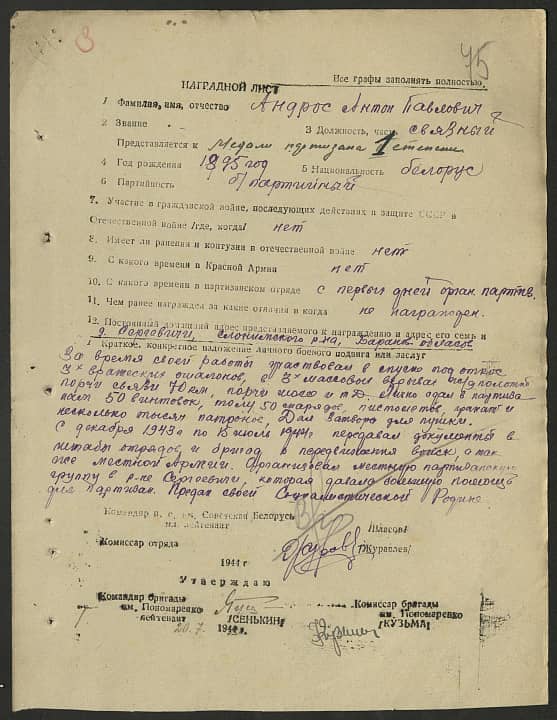 3
45
Все графы заполнять полностью.
НАГРАДНОЙ ЛИСТ
1 Фамилия, имя, отчество Андрос Антон Павлович
2 Звание 3 Должность, часть связный
Представляется к Медали партизана 1 степени
4 Год рождения 1895 год 5 Национальность белорус
6 Партийность б/партийный
7. Участие в гражданской войне, последующих действиях в защите СССР в
Отечественной войне /где, когда/ нет
8. Имеет ли ранения и контузии в отечественной войне нет
9. С какого времени в Красной Армии нет
10. С какого времени в партизанском отряде с первых дней орган. партиз.
11. Чем ранее награжден за какие отличия и когда не награжден.
12. Постоянный домашний адрес представляемого к награждению и адрес его семьи
д. Сергевичи, Слонимского р-на, Баранов. области
1 Краткое, конкретное изложение личного боевого подвига или заслуг
За время своей работы участвовал в спуске под откос
3х вражеских эшелонов, в 3х массовых
порчи связи 70 км, порчи шоссе и т.д. Лично сдал в партиза-
50 винтовок, толу 50 снарядов, пистолетов, гранат и
несколько тысяч патронов, Дал затвора для пушки.
С декабря 1943 г по 15 июль 1944 г передавал документы в
штабы отрядов и бригад о передвижении войск, а так
же местной Армии. Организовал местную партизанскую
группу в р-не Сергевичи, которая давала большую помощь
для партизан. Предан своей Социалистической Родине.
Командир п. о. им. Советская Белорусь
мл. лейтенант /Власов/
Комиссар отряда /Журавлев/
1944 г
Утверждаю
Командир бригады Комиссар бригады
им. Пономаренко им. Пономаренко
лейтенант /СЕНЬКИН/ /КУЗЬМА/
20.7. 1944 г.